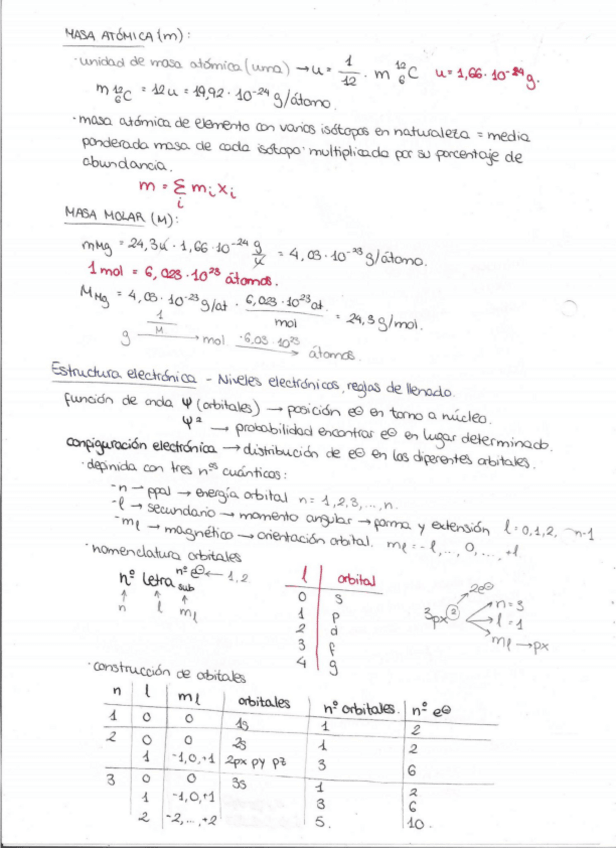 MASA ATÓMICA (m):
· unidad de masa atómica (uma) → u = 1/12 · m ¹²₆C  u = 1,66 · 10⁻²⁴ g.
m ¹²₆C = 12u = 19,92 · 10⁻²⁴ g/átomo.
· masa atómica de elemento con varios isótopos en naturaleza = media
ponderada masa de cada isótopo · multiplicada por su porcentaje de
abundancia.
m = Σᵢ mᵢ xᵢ
MASA MOLAR (M):
mMg = 24,3u · 1,66 · 10⁻²⁴ g/u = 4,03 · 10⁻²³ g/átomo.
1 mol = 6,023 · 10²³ átomos.
MMg = 4,03 · 10⁻²³ g/at · 6,023 · 10²³ at. / mol = 24,3 g/mol.
g → 1/M → mol → · 6,03 · 10²³ → átomos.
Estructura electrónica - Niveles electrónicos, reglas de llenado.
función de onda Ψ (orbitales) → posición e⊖ en torno a núcleo.
Ψ² → probabilidad encontrar e⊖ en lugar determinado.
configuración electrónica → distribución de e⊖ en los diferentes orbitales.
· definida con tres nºs cuánticos:
- n → ppal → energía orbital n = 1,2,3,...,n.
- l → secundario → momento angular → forma y extensión l = 0,1,2, n-1
- ml → magnético → orientación orbital. ml = -l,..,0,...,+l
· nomenclatura orbitales
nº letra sub nº e⊖ ← 1,2
n l ml
l orbital
0 s
1 p
2 d
3 f
4 g
3px² → 2e⊖
n = 3
l = 1
ml → px
· construcción de orbitales
n l ml orbitales nº orbitales. nº e⊖
1 0 0 1s 1 2
2 0 0 2s 1 2
1 -1,0,+1 2px py pz 3 6
3 0 0 3s 1 2
1 -1,0,+1 3 6
2 -2,...,+2 5. 10.